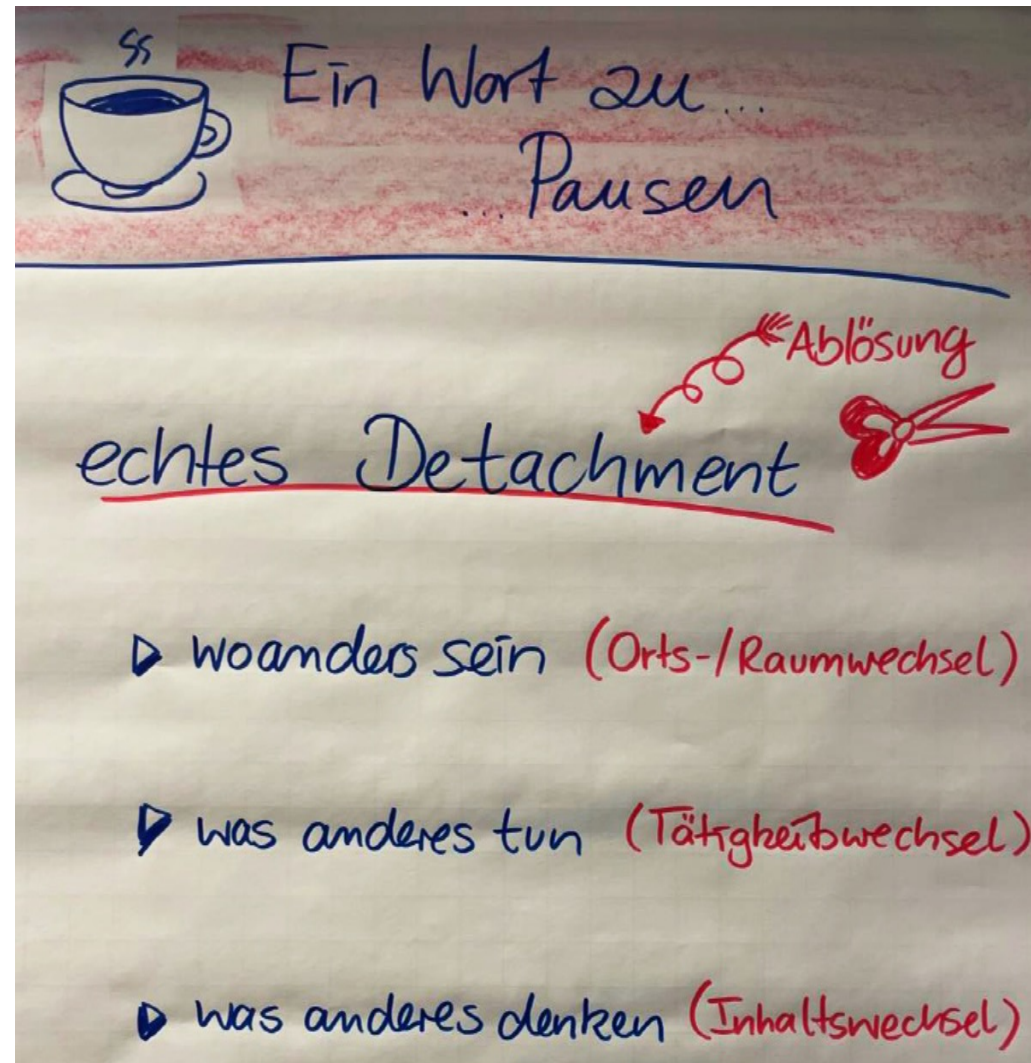 Ein Wort zu...
...Pausen
Ablösung
echtes Detachment
woanders sein (Orts-/Raumwechsel)
was anderes tun (Tätigkeitswechsel)
was anderes denken (Inhaltswechsel)